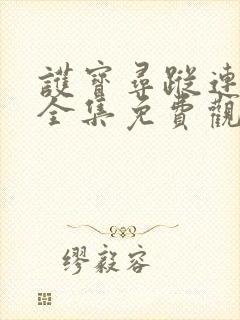 護寶尋蹤連
全集免費觀
繆毅容